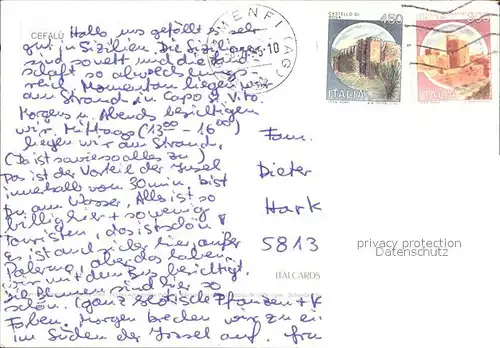 CEFALÙ
Hallo, uns gefällt es sehr
gut in Sizilien. Die Sizilianer
sind so nett und die Land-
schaft so abwechslungs-
reich. Momentan liegen wir
am Strand, in Capo S. Vito.
Morgens u. Abends besichtigen
wir. Mittags (13°° - 16°°)
liegen wir am Strand.
(Da ist sowieso alles zu)
Das ist der Vorteil der Insel
innerhalb von 30 min. bist
Du am Wasser. Alles ist so
billig hier + so wenig
Touristen, das ist schön
Es ist auch sicher hier, außer
Palermo, aber das haben
wir mit dem Bus besichtigt.
Die Blumen sind hier so
schön. (ganz exotische Pflanzen + K
Faben. Morgen brechen wir zu ei
im Süden der Insel auf.
MENFI (AG)
CASTELLO DI
450
ITALIA
ITALIA
Fam.
Dieter
Hark
5813
ITALCARDS
privacy protection
Datenschutz